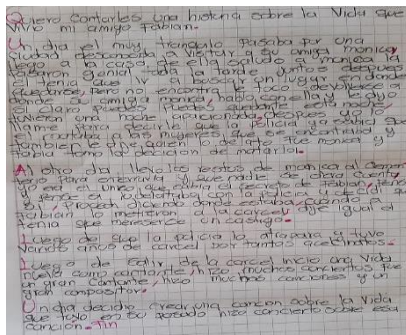 Quiero contarles una historia sobre la vida que
vivio mi amigo Fabian.
Un dia el muy tranquilo pasaba por una
ciudad desconocida a visitar a su amiga monica
llego a la casa de ella saludo a monica la
pasaron genial toda la tarde juntos despues
el tenia que ir a buscar un lugar en donde
quedarse, pero no encontro le toco devolverse a
donde su amiga monica, hablo con ella y le dijo
si claro puedes puedes quedarte esta noche,
tuvieron una noche apacionada, despues yo lo
llame para decirle que la policia ya sabia que
el mataba a las mujeres que se encontraba y
tambien le dije quien lo delato fue monica y
fabia tomo la decicion de matarla.
Al otro dia llevo los restos de monica al cemen
terio para y que nadie se diera cuenta
yo era el unico que sabia el secreto de Fabian,
y donde estaba, cuando a
Fabian lo metieron a la carcel dije igual el
tenia que un castigo.
Luego de que la policia lo atrapara y tuvo
varios años de carcel por tantos
Luego de salir de la carcel inicio una vida
nueva como cantante, hizo muchos conciertos fue
un gran cantante, hizo muchas canciones y un
gran compositor.
Un dia decidio crear una cancion sobre la vida
que tuvo en su pasado hizo concierto sobre esa
cancion. Fin